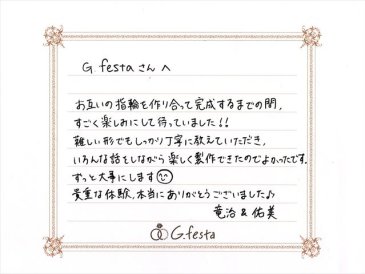 G.festaさんへ
お互いの指輪を作り合って完成するまでの間、
すごく楽しみにして待っていました!!
難しい形でもしっかり丁寧に教えていただき、
いろんな話をしながら楽しく製作できたのでよかったです。
ずっと大事にします☺
貴重な体験、本当にありがとうございました♪
竜治 & 佑美
G.festa